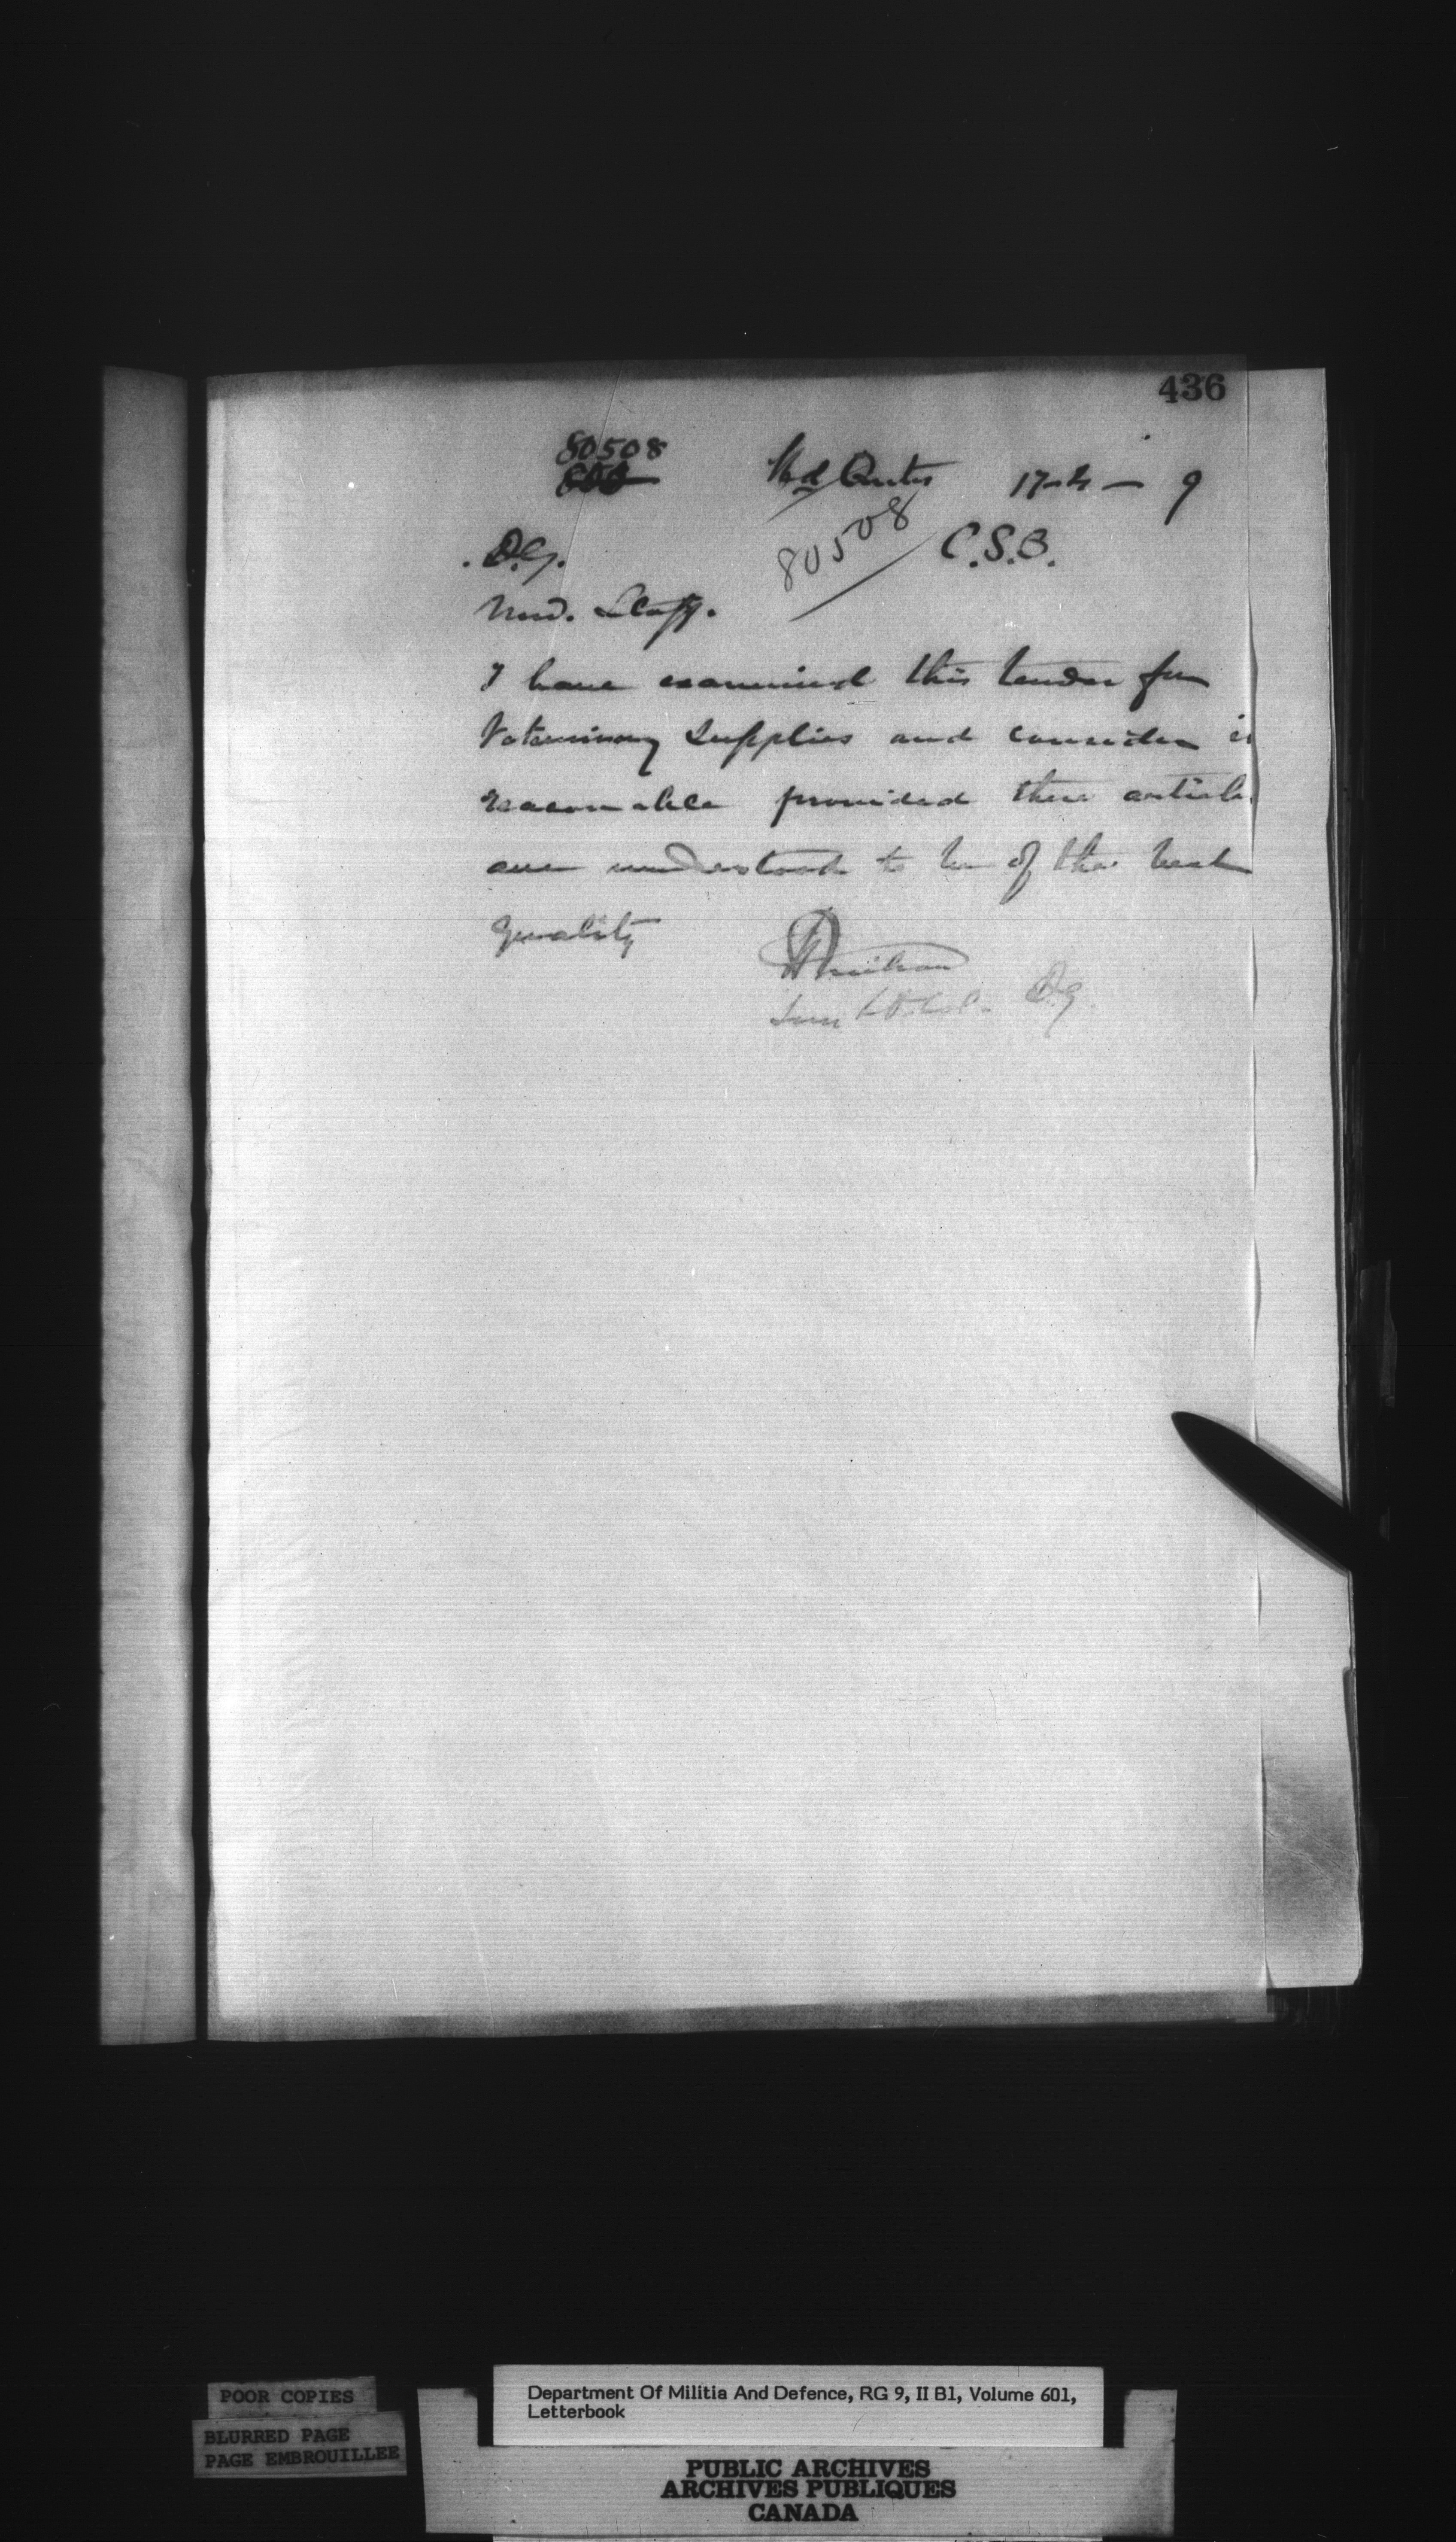 436
80508
Hd Qrters 17-2- 9
80508
D.G. C.S.B.
Med. Staff.
I have examined this tender for
Veterinary Supplies and consider it
reasonable provided these article
are understood to be of the best
quality
D.G.
POOR COPIES
BLURRED PAGE
PAGE EMBROUILLEE
Department Of Militia And Defence, RG 9, II B1, Volume 601,
Letterbook
PUBLIC ARCHIVES
ARCHIVES PUBLIQUES
CANADA